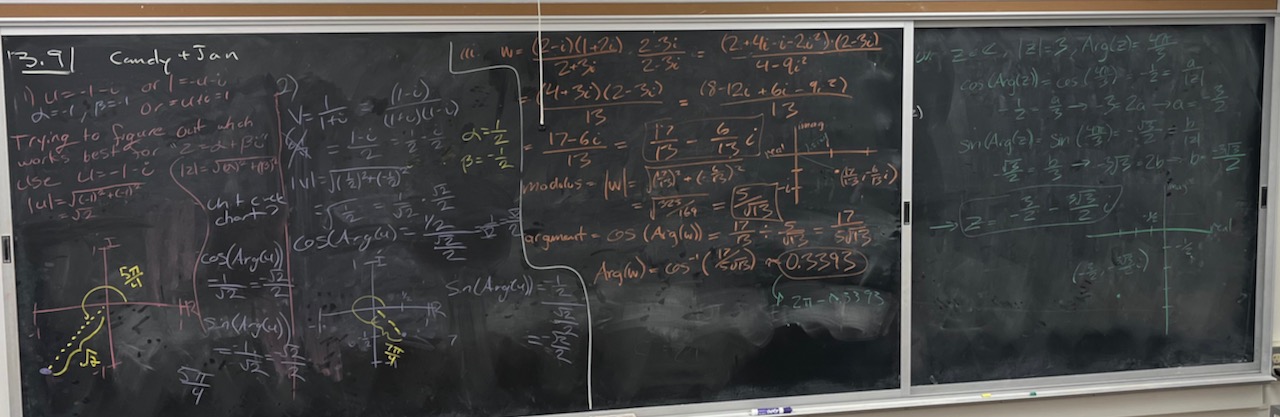 3.9] Candy + Jan
i) u = -1-i or 1 = -u-i
α = -1, β = -1 or = u+i = -1
Trying to figure out which
works best for "z = α + βi"
use u = -1-i
|z| = √(α)² + (β)²
|u| = √(-1)² + (-1)²
= √2
unit circle
chart?
cos(Arg(u))
-1/√2 = -√2/2
sin(Arg(u))
= -1/√2 = -√2/2
5π/4
I
5π/4
√2
2)
V = 1/(1+i) = (1-i)/((1+i)(1-i))
= (1-i)/2 = 1/2 - i/2
α = 1/2
β = -1/2
|V| = √(1/2)² + (-1/2)²
= √1/2 = 1/√2 = √2/2
cos(Arg(u)) = (1/2)/(√2/2)
Sin(Arg(u)) = -1/2
√2/2
= -√2/2
I
R
7π/4
iii. w = (2-i)(1+2i)/(2+3i) · (2-3i)/(2-3i) = (2+4i-i-2i²)·(2-3i)/(4-9i²)
= (4+3i)(2-3i)/13 = (8-12i+6i-9i²)/13
= (17-6i)/13 = 17/13 - 6/13 i
modulus = |w| = √(17/13)² + (-6/13)²
= √325/169 = 5/√13
argument = cos(Arg(w)) = 17/13 ÷ 5/√13 = 17/5√13
Arg(w) = cos⁻¹(17/5√13) ≈ 0.3393
2π - 0.3393
imag
real
(17/13, -6/13 i)
|z| = 3, Arg(z) = 4π/3
cos(Arg(z)) = cos(4π/3) = -1/2 = a/|z|
-1/2 = a/3 → -3 = 2a → a = -3/2
sin(Arg(z)) = sin(4π/3) = -√3/2 = b/|z|
-√3/2 = b/3 → -3√3 = 2b = b = -3√3/2
→ z = -3/2 - 3√3/2 i
imag
real